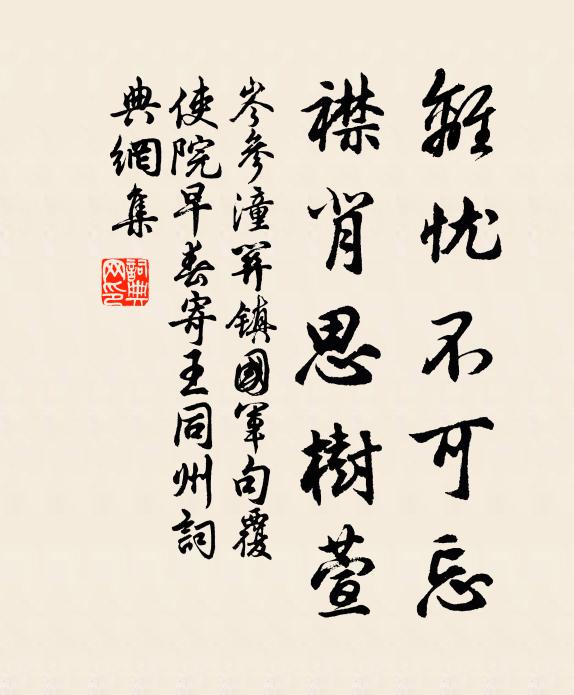 離憂不可忘
襟背思樹萱
岑參潼關鎮國軍句覆
使院早春寄王同州詞
典網集
詞典
网印